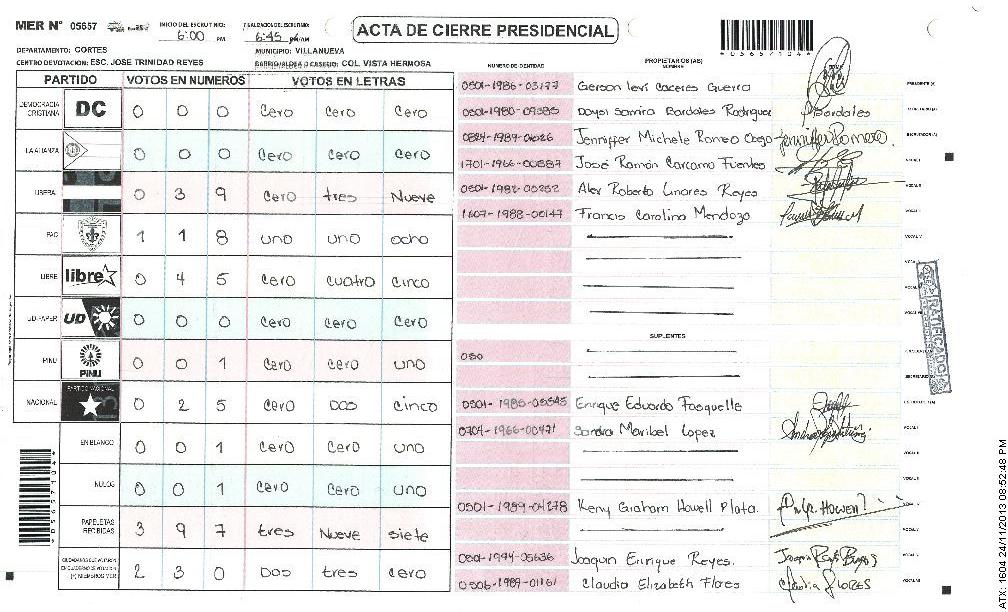 MER N° 05657
INICIO DEL ESCRUTINIO:
6:00 PM
FINALIZACION DEL ESCRUTINIO:
6:45 PM
ACTA DE CIERRE PRESIDENCIAL
*05657104*
DEPARTAMENTO: CORTES
MUNICIPIO: VILLANUEVA
CENTRO DE VOTACION: ESC. JOSE TRINIDAD REYES
BARRIO/ALDEA O CASERIO: COL VISTA HERMOSA
PARTIDO VOTOS EN NUMEROS VOTOS EN LETRAS
DEMOCRACIA CRISTIANA DC 0 0 0 Cero Cero Cero
LA ALIANZA 0 0 0 Cero Cero Cero
LIBERAL 0 3 9 Cero tres Nueve
PAC 1 1 8 uno uno ocho
LIBRE libre 0 4 5 Cero cuatro cinco
UD-FAPER UD 0 0 0 Cero Cero Cero
PINU PINU 0 0 1 Cero Cero uno
NACIONAL PARTIDO NACIONAL 0 2 5 Cero Dos cinco
EN BLANCO 0 0 1 Cero Cero uno
NULOS 0 0 1 Cero Cero uno
PAPELETAS RECIBIDAS 3 9 7 tres Nueve siete
2 3 0 Dos tres Cero
NUMERO DE IDENTIDAD
PROPIETARIOS (AS)
NOMBRE
0501-1986-03177 Gerson Levi Caceres Guerra PRESIDENTE (A)
0501-1980-09385 Daysi Samira Bordales Rodriguez Bordales
0824-1989-01026 Jenniffer Michele Romeo Jenniffer Romero
1701-1966-00887 José Ramón Carcamo Fuentes
0501-1982-05252 Alex Roberto Linares Reyes
1607-1988-00147 Francis Carolina Mendoza
SUPLENTES
050
0501-1985-05545 Enrique Eduardo Fasquelle
0704-1966-00471 Sandra Maribel Lopez
0501-1989-01278 Keny Graham Howell Plata. Howell
0501-1994-05636 Joaquin Enrique Reyes.
0506-1989-01161 Claudia Elizabeth Flores Claudia FLORES
RATIFICADO
*05657104*
ATX: 1604 24/11/2013 08:52:48 PM